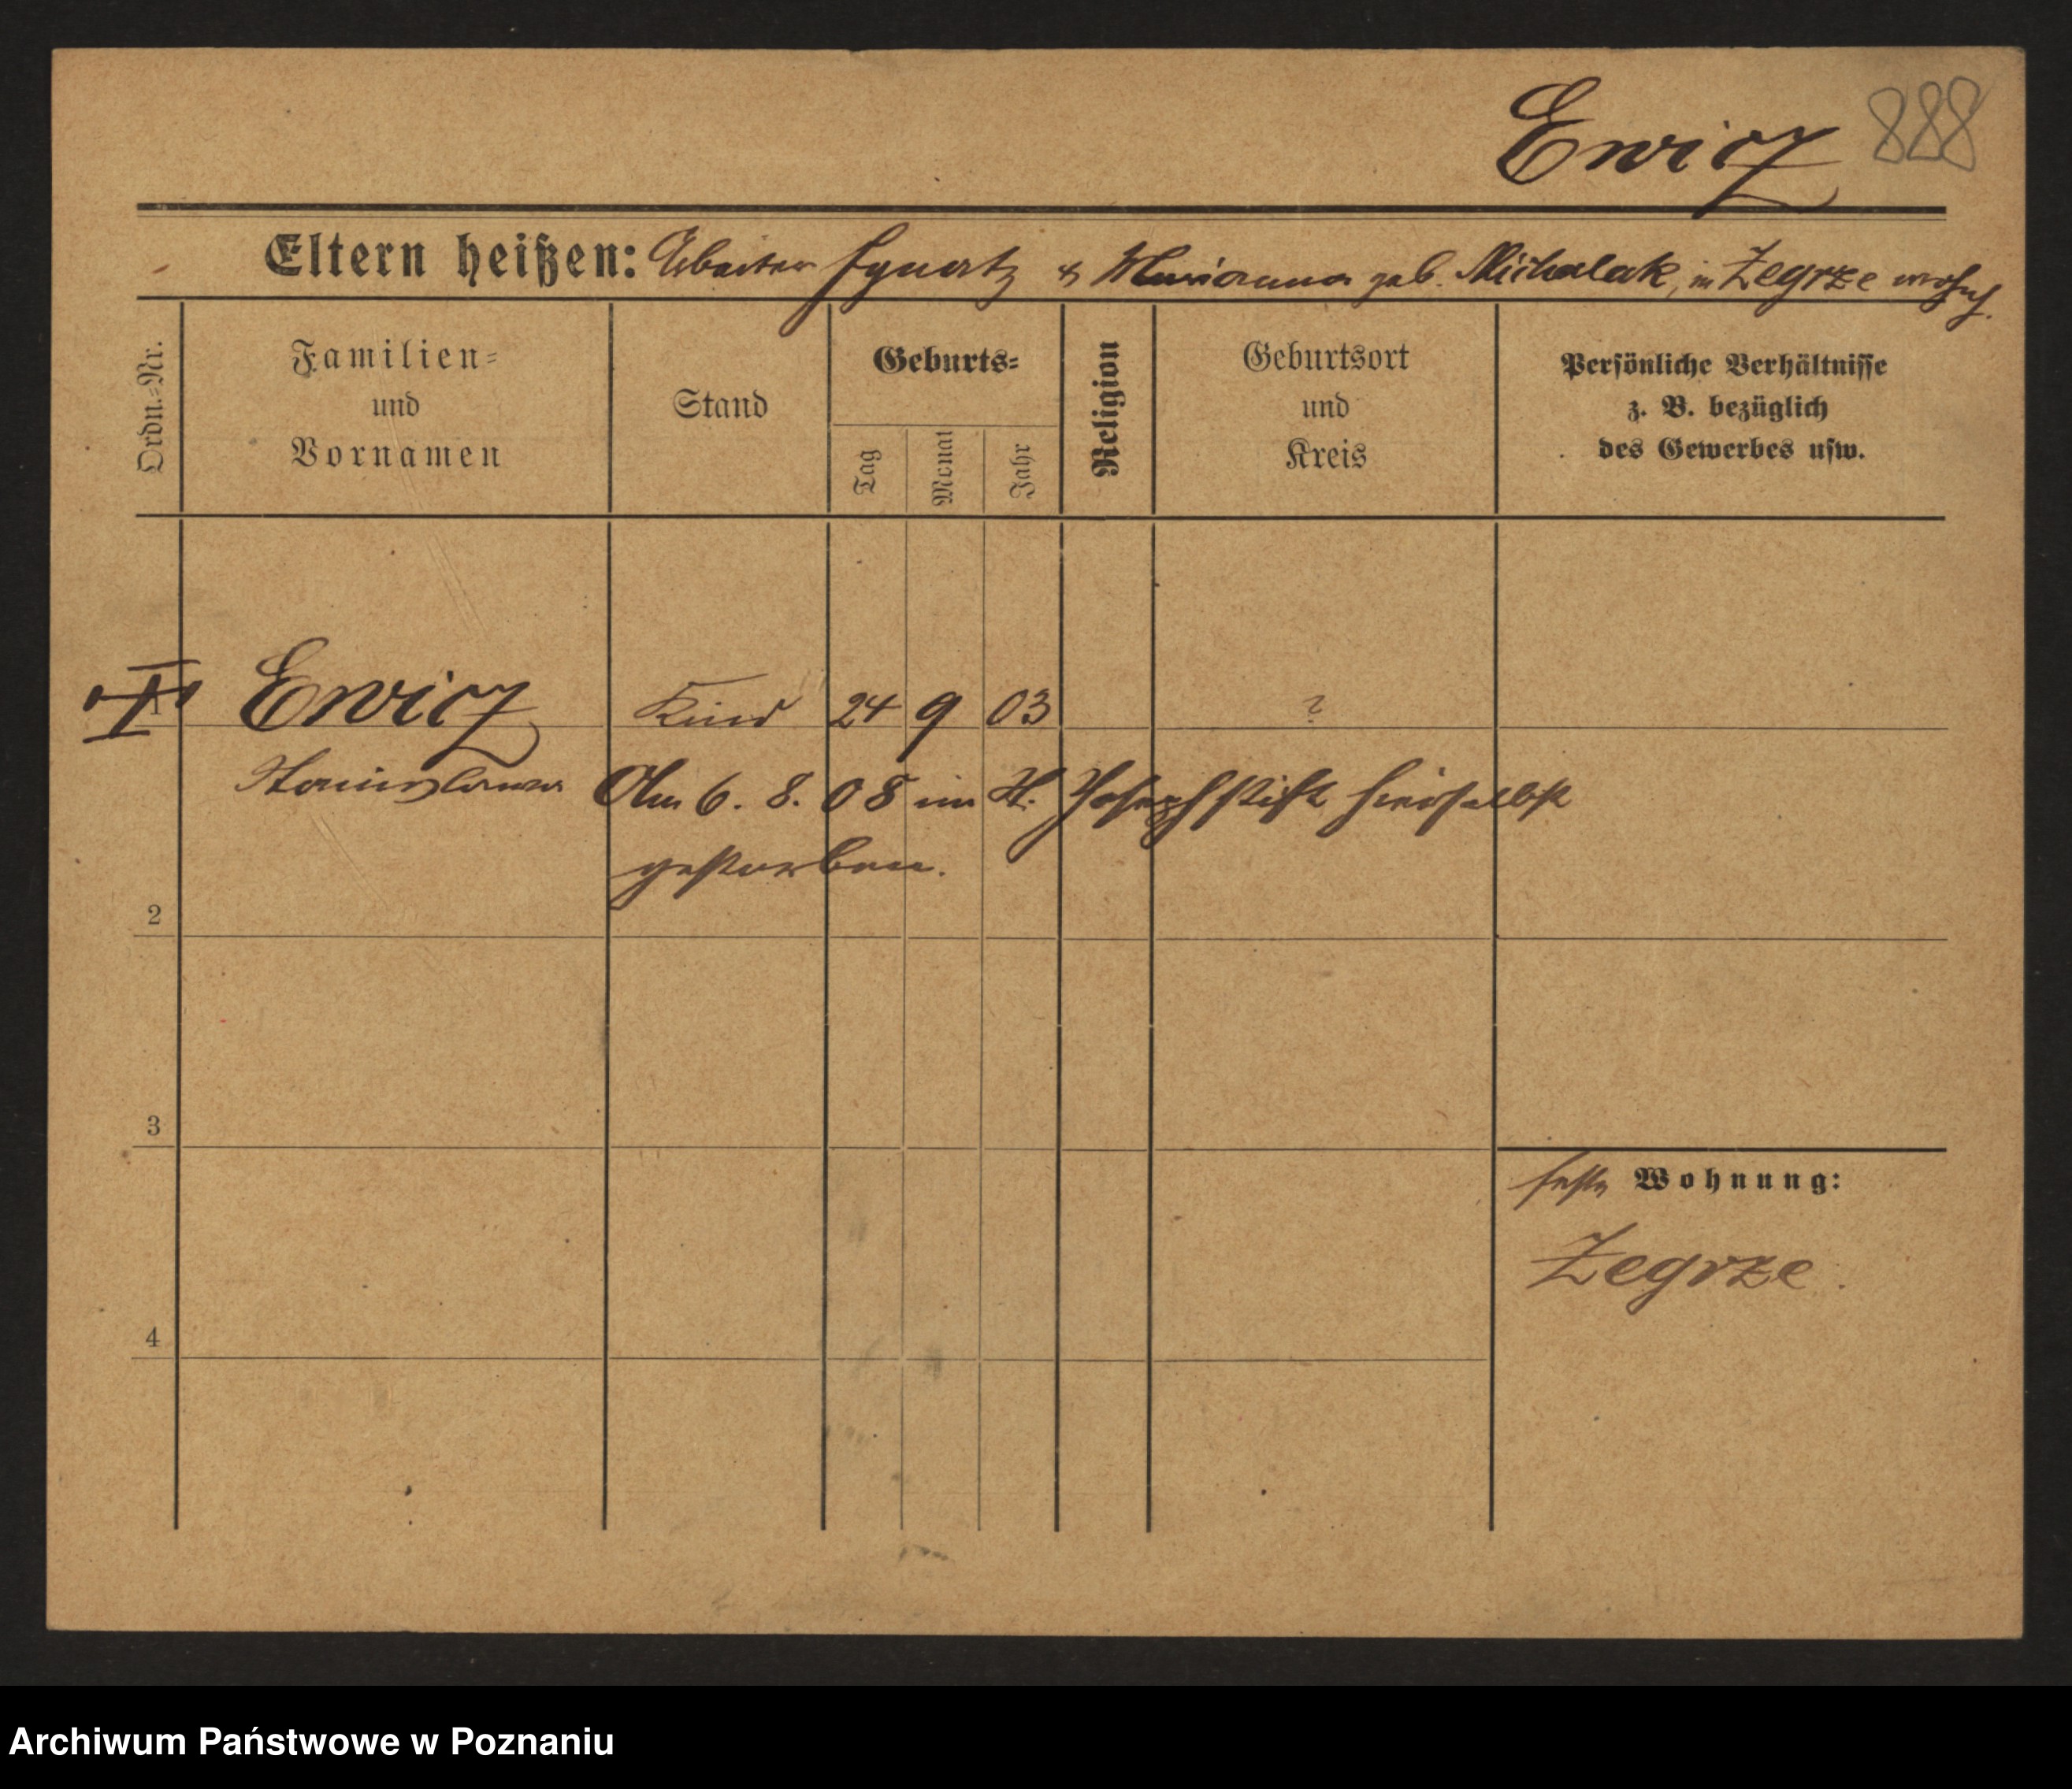 Ewicz 888
Eltern heißen: Arbeiter Ignatz & Marianna geb. Michalak, in Zegrze wohnh.
Ordn.-Nr.
Familien-
und
Vornamen
Stand
Geburts-
Tag
Monat
Jahr
Religion
Geburtsort
und
Kreis
Persönliche Verhältnisse
z. B. bezüglich
des Gewerbes usw.
1 Ewicz Kind 24 9 03 ?
Stanislaus Am 6. 8. 08 im St. Josephstift hierselbst
gestorben.
2
3
feste Wohnung:
Zegrze.
4
Archiwum Państwowe w Poznaniu